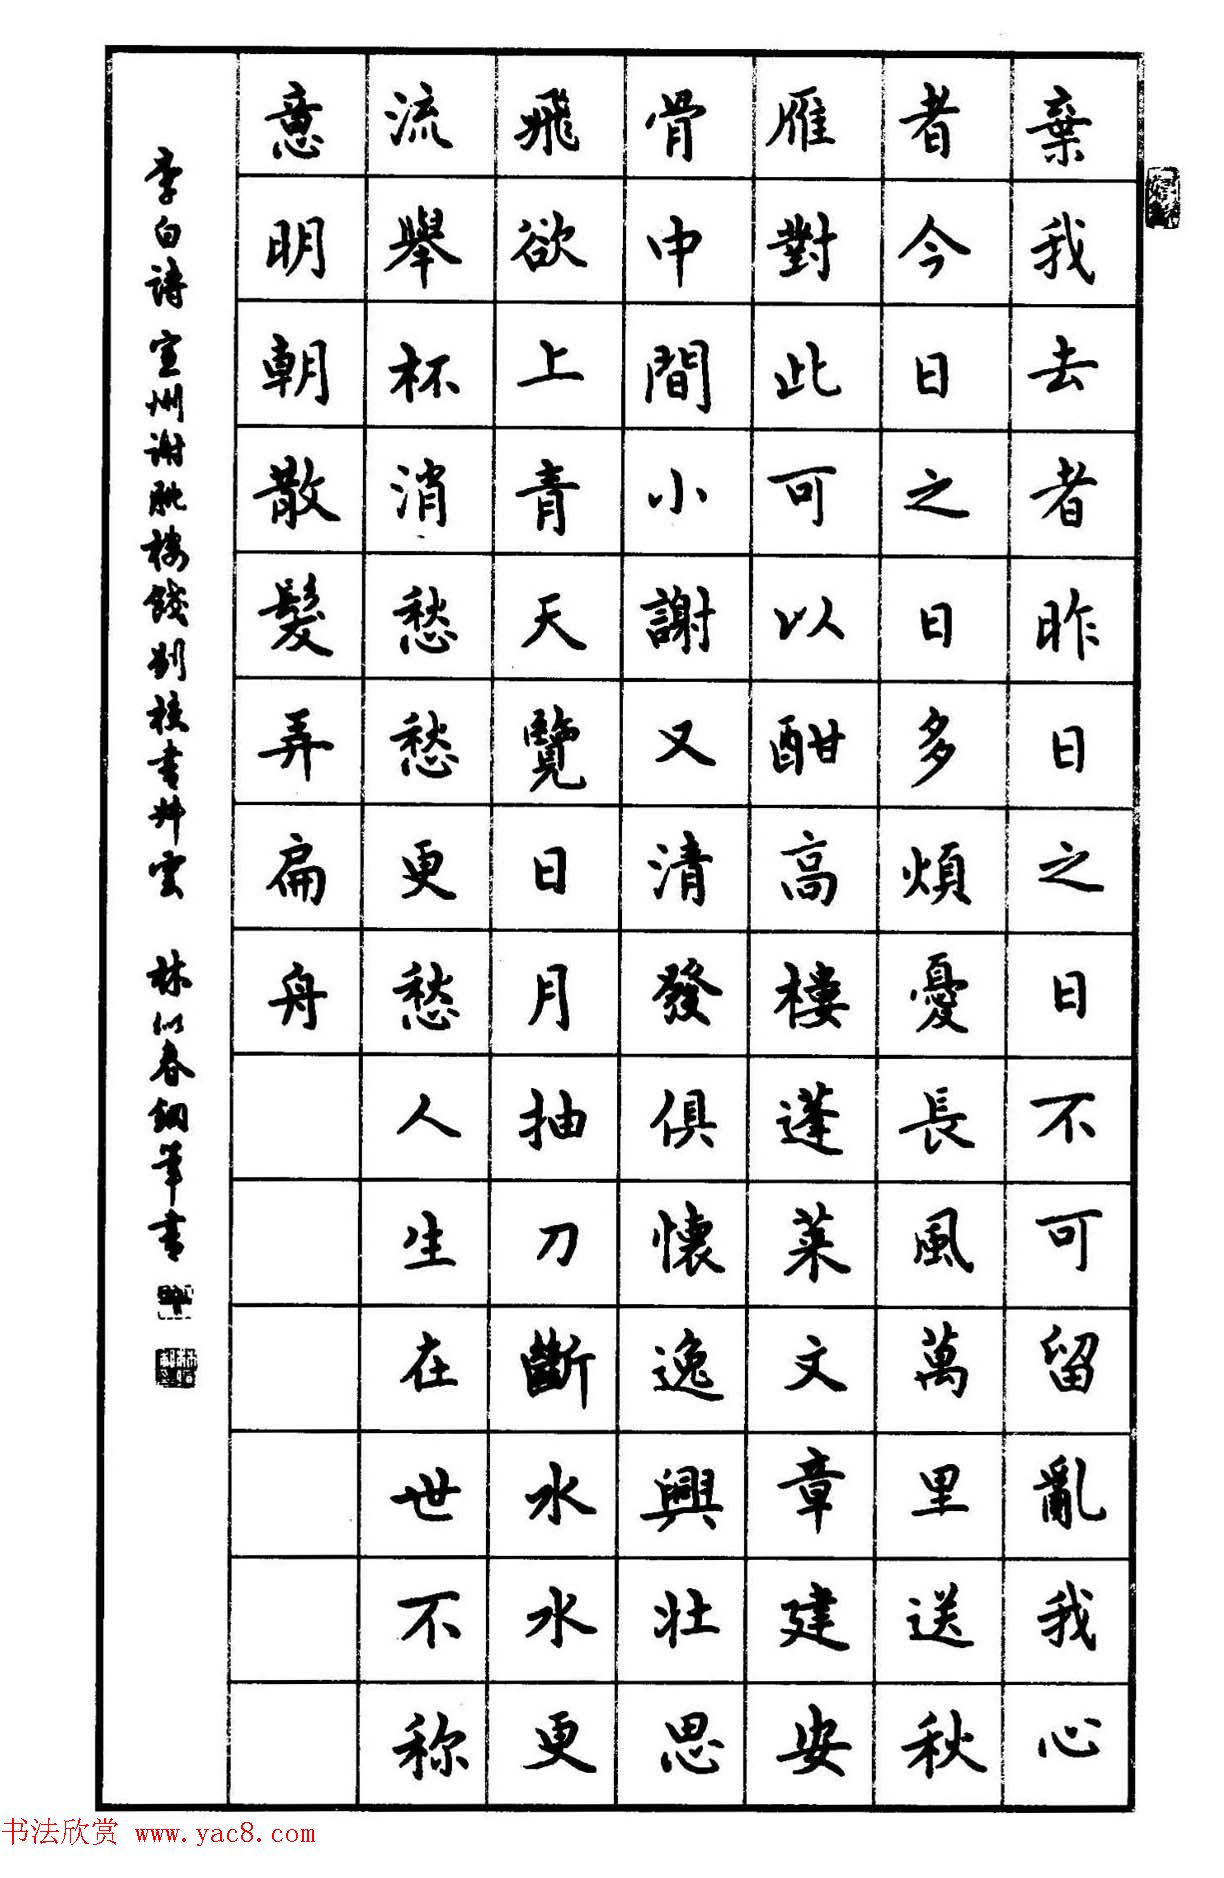 棄我去者昨日之日不可留亂我心
者今日之日多煩憂長風萬里送秋
雁對此可以酣高樓蓬萊文章建安
骨中間小謝又清發俱懷逸興壯思
飛欲上青天覽日月抽刀斷水水更
流舉杯消愁愁更愁人生在世不称
意明朝散髮弄扁舟
李白詩宣州謝朓樓餞別校書叔雲 林似春鋼筆書
书法欣赏 www.yac8.com